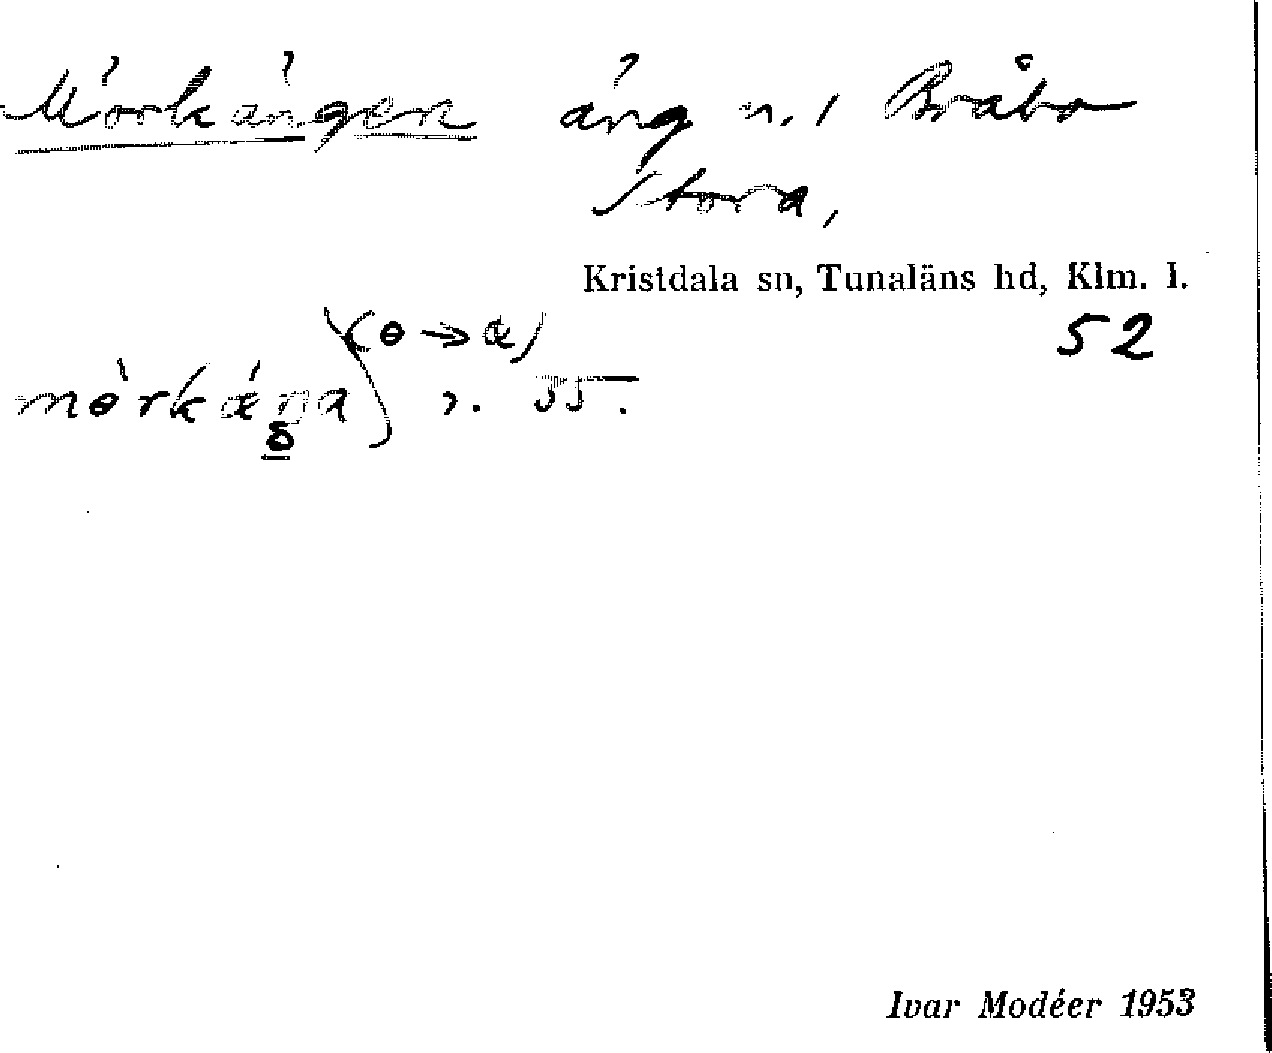 Mörkängen äng n. i Bråbo
Stora,
Kristdala sn, Tunaläns hd, Klm. l.
52
(ɵ→œ)
55.
Ivar Modéer 1953